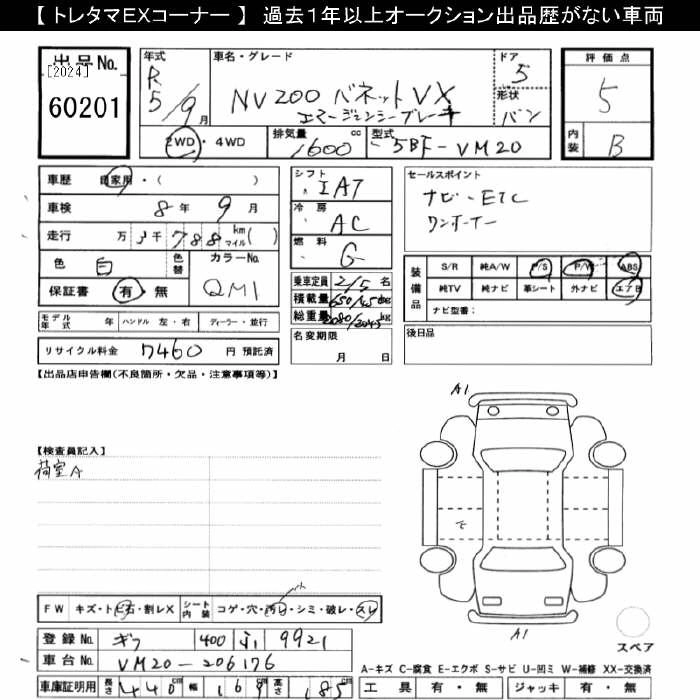 【 トレタマEXコーナー 】 過去1年以上オークション出品歴がない車両
出品No.
[2024]
60201
年式
R5/9月
車名・グレード
NV200 バネットVX
エマージェンシーブレーキ
ドア
5
形状
バン
評価点
5
内装
B
2WD・4WD
排気量
1600 cc
型式
5BF-VM20
車歴 自家用・( )
車検 8年 9月
走行 万 3千788 km マイル( )
色 白 色替 カラーNo.
QM1
保証書 有・無
モデル年式 年 ハンドル 左・右 ディーラー・並行
リサイクル料金 7460 円 預託済
シフト
IAT
冷房
AC
燃料
G
乗車定員 2/5 名
積載量 kg
総重量 2080/2045 kg
名変期限
月 日
セールスポイント
ナビ・ETC
ワンオーナー
装備品
S/R 純A/W P/S P/W ABS
純TV 純ナビ 革シート 外ナビ エアB
ナビ型番:
後日品
【出品店申告欄(不良箇所・欠品・注意事項等)】
【検査員記入】
荷室A
A1
A1
スペア
FW キズ・トビ石・割レX シート内装 コゲ・穴・汚レ・シミ・破レ・スレ
登録No. ギフ 400 9921
車台No. VM20-206176
車庫証明用 長さ 440 cm 幅 169 cm 高さ 185 cm
A-キズ C-腐食 E-エクボ S-サビ U-凹ミ W-補修 XX-交換済
工具 有・無 ジャッキ 有・無